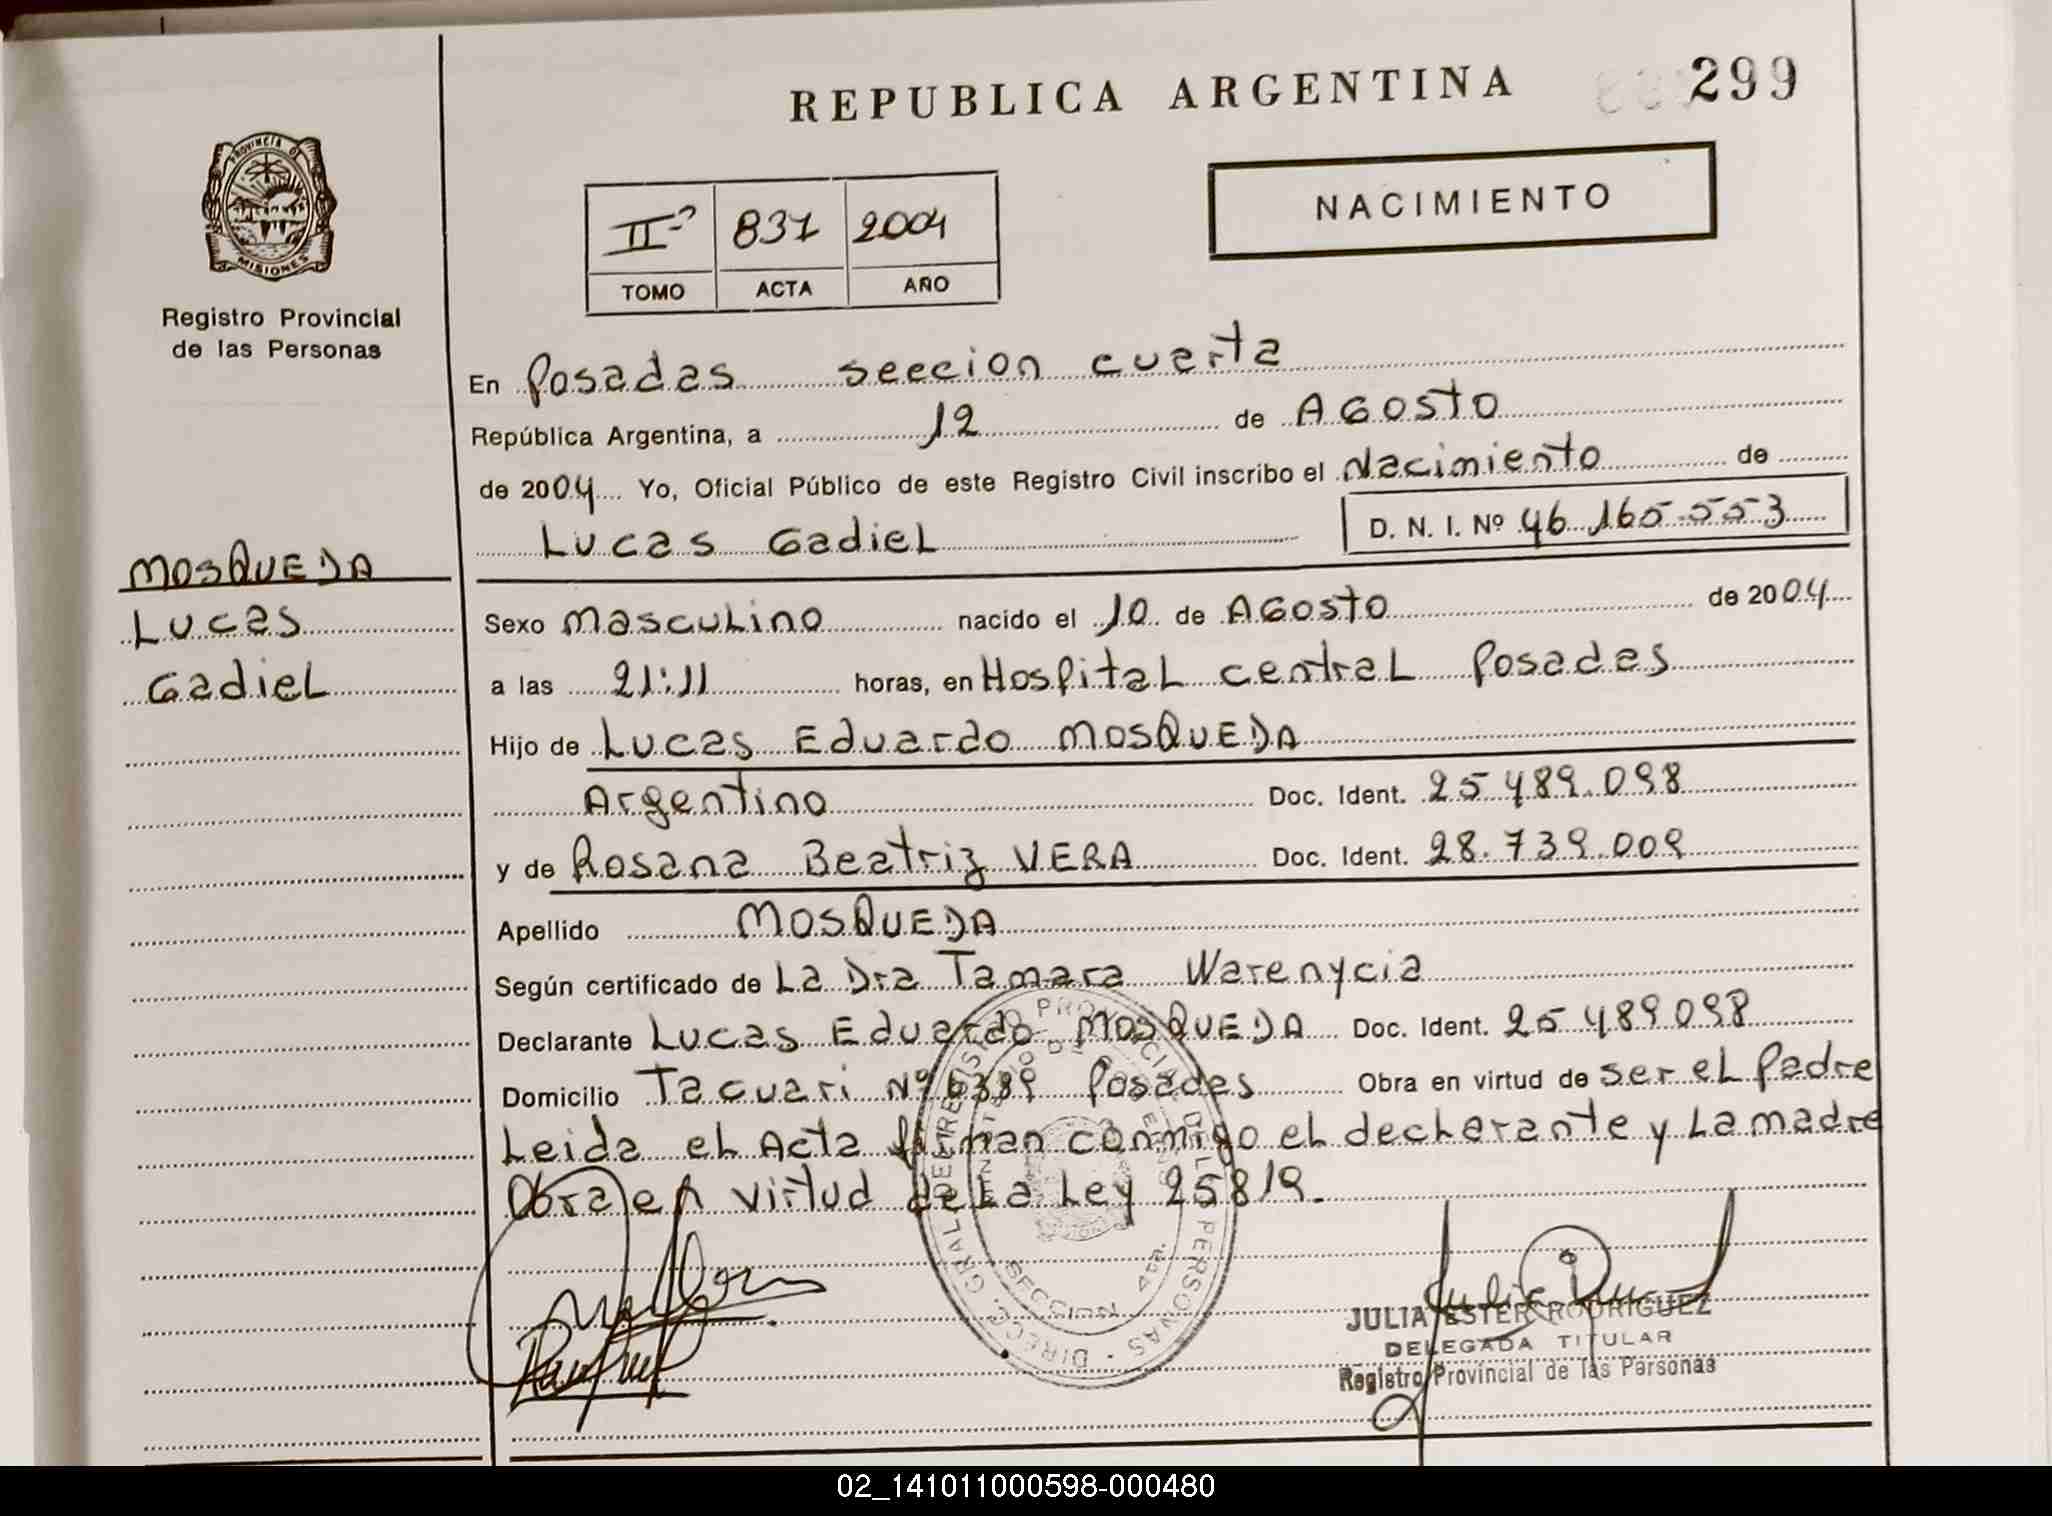 REPUBLICA ARGENTINA
299
PROVINCIA DE
MISIONES
Registro Provincial
de las Personas
NACIMIENTO
IIº 837 2004
TOMO ACTA AÑO
En Posadas seccion cuarta
República Argentina, a 12 de AGosto
de 2004 Yo, Oficial Público de este Registro Civil inscribo el Nacimiento de
Lucas Gadiel D. N. I. Nº 46.165.553
MOSQUEDA
Lucas
Gadiel
Sexo masculino nacido el 10 de AGosto de 2004
a las 21:11 horas, en Hospital central Posadas
Hijo de Lucas Eduardo MOSQUEDA
Argentino Doc. Ident. 25.489.098
y de Rosana Beatriz VERA Doc. Ident. 28.739.009
Apellido MOSQUEDA
Según certificado de La Dra Tamara Warenycia
Declarante Lucas Eduardo MOSQUEDA Doc. Ident. 25489098
Domicilio Tacuari Nº 6389 Posadas Obra en virtud de ser el Padre
Leida el Acta firman conmigo el declarante y La madre
Obra en virtud de La Ley 25819.
DIREC. GRAL. DEL REGISTRO PROVINCIAL DE LAS PERSONAS
SECCION 4ta.
JULIA ESTER RODRIGUEZ
DELEGADA TITULAR
Registro Provincial de las Personas
02_141011000598-000480